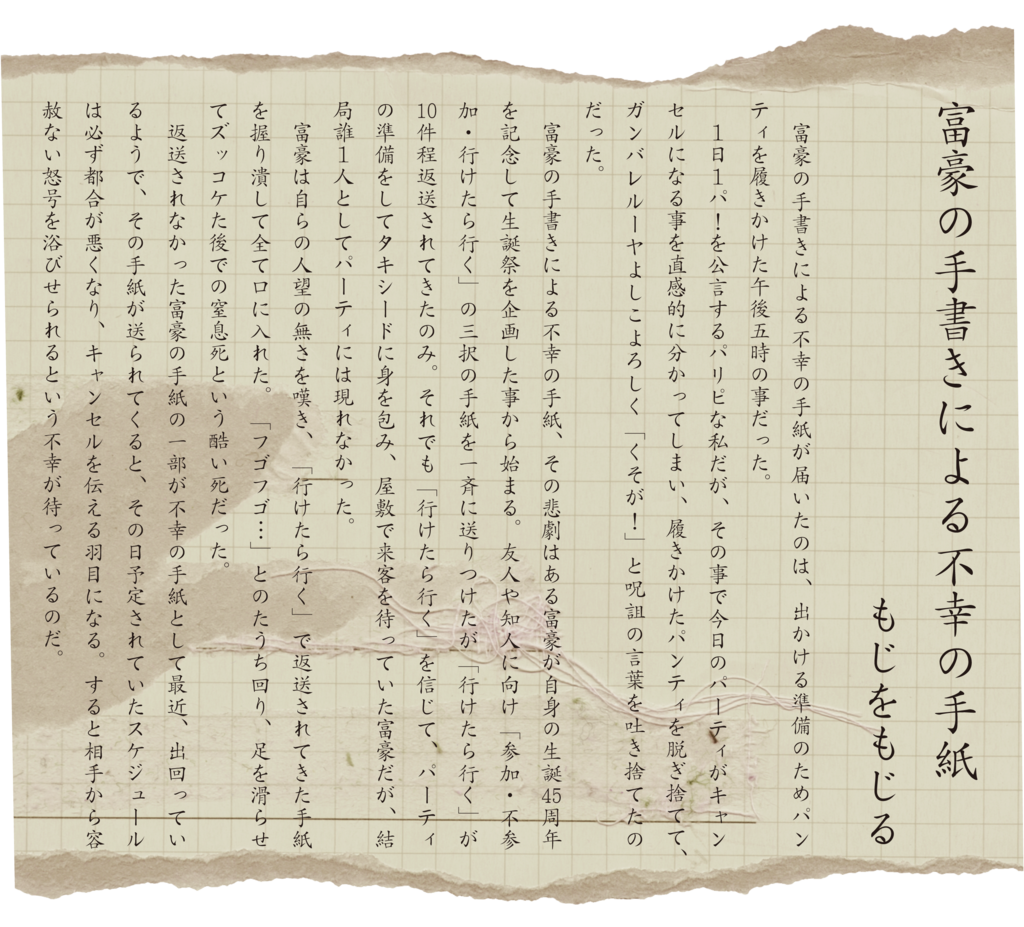 富豪の手書きによる不幸の手紙
もじをもじる
富豪の手書きによる不幸の手紙が届いたのは、出かける準備のためパン
ティを履きかけた午後五時の事だった。
1日1パ！を公言するパリピな私だが、その事で今日のパーティがキャン
セルになる事を直感的に分かってしまい、履きかけたパンティを脱ぎ捨てて、
ガンバレルーヤよしこよろしく「くそが！」と呪詛の言葉を吐き捨てたの
だった。
富豪の手書きによる不幸の手紙、その悲劇はある富豪が自身の生誕45周年
を記念して生誕祭を企画した事から始まる。友人や知人に向け「参加・不参
加・行けたら行く」の三択の手紙を一斉に送りつけたが「行けたら行く」が
10件程返送されてきたのみ。それでも「行けたら行く」を信じて、パーティ
の準備をしてタキシードに身を包み、屋敷で来客を待っていた富豪だが、結
局誰1人としてパーティには現れなかった。
富豪は自らの人望の無さを嘆き、「行けたら行く」で返送されてきた手紙
を握り潰して全て口に入れた。「フゴフゴ…」とのたうち回り、足を滑らせ
てズッコケた後での窒息死という酷い死だった。
返送されなかった富豪の手紙の一部が不幸の手紙として最近、出回ってい
るようで、その手紙が送られてくると、その日予定されていたスケジュール
は必ず都合が悪くなり、キャンセルを伝える羽目になる。すると相手から容
赦ない怒号を浴びせられるという不幸が待っているのだ。